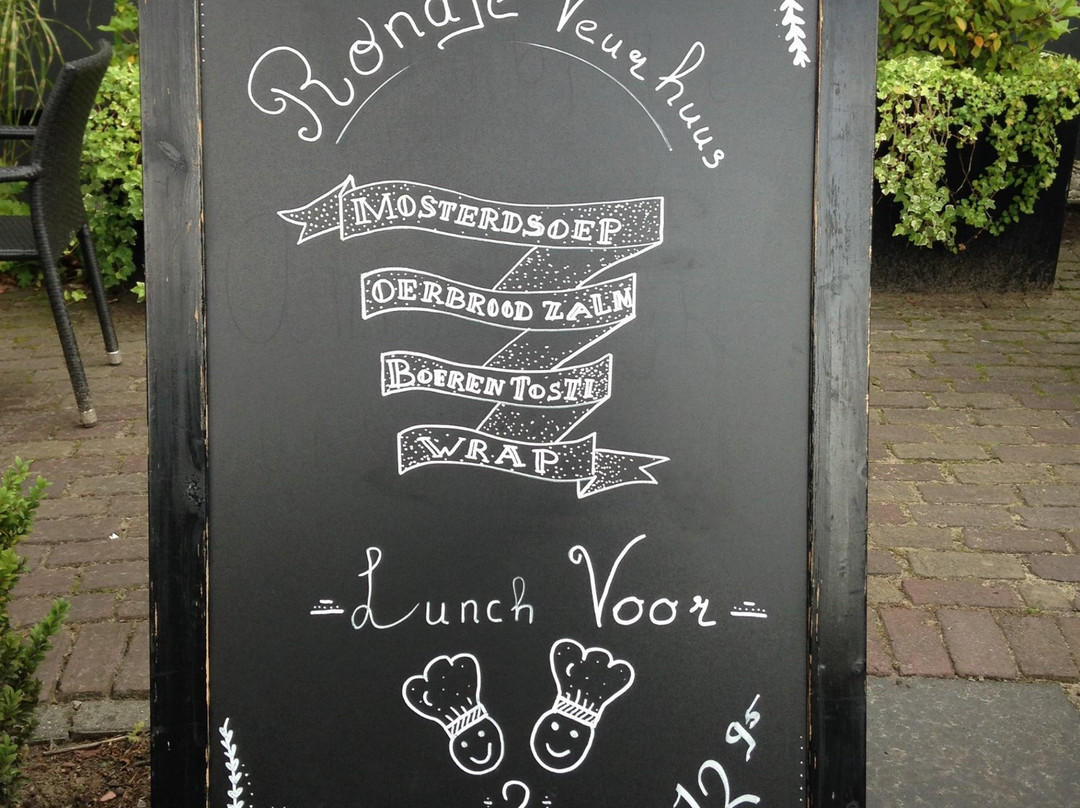 Rondje Veurhuus
MOSTERDSOEP
OERBROOD ZALM
BOEREN TOSTI
WRAP
- Lunch Voor -
- 2 -
12,95